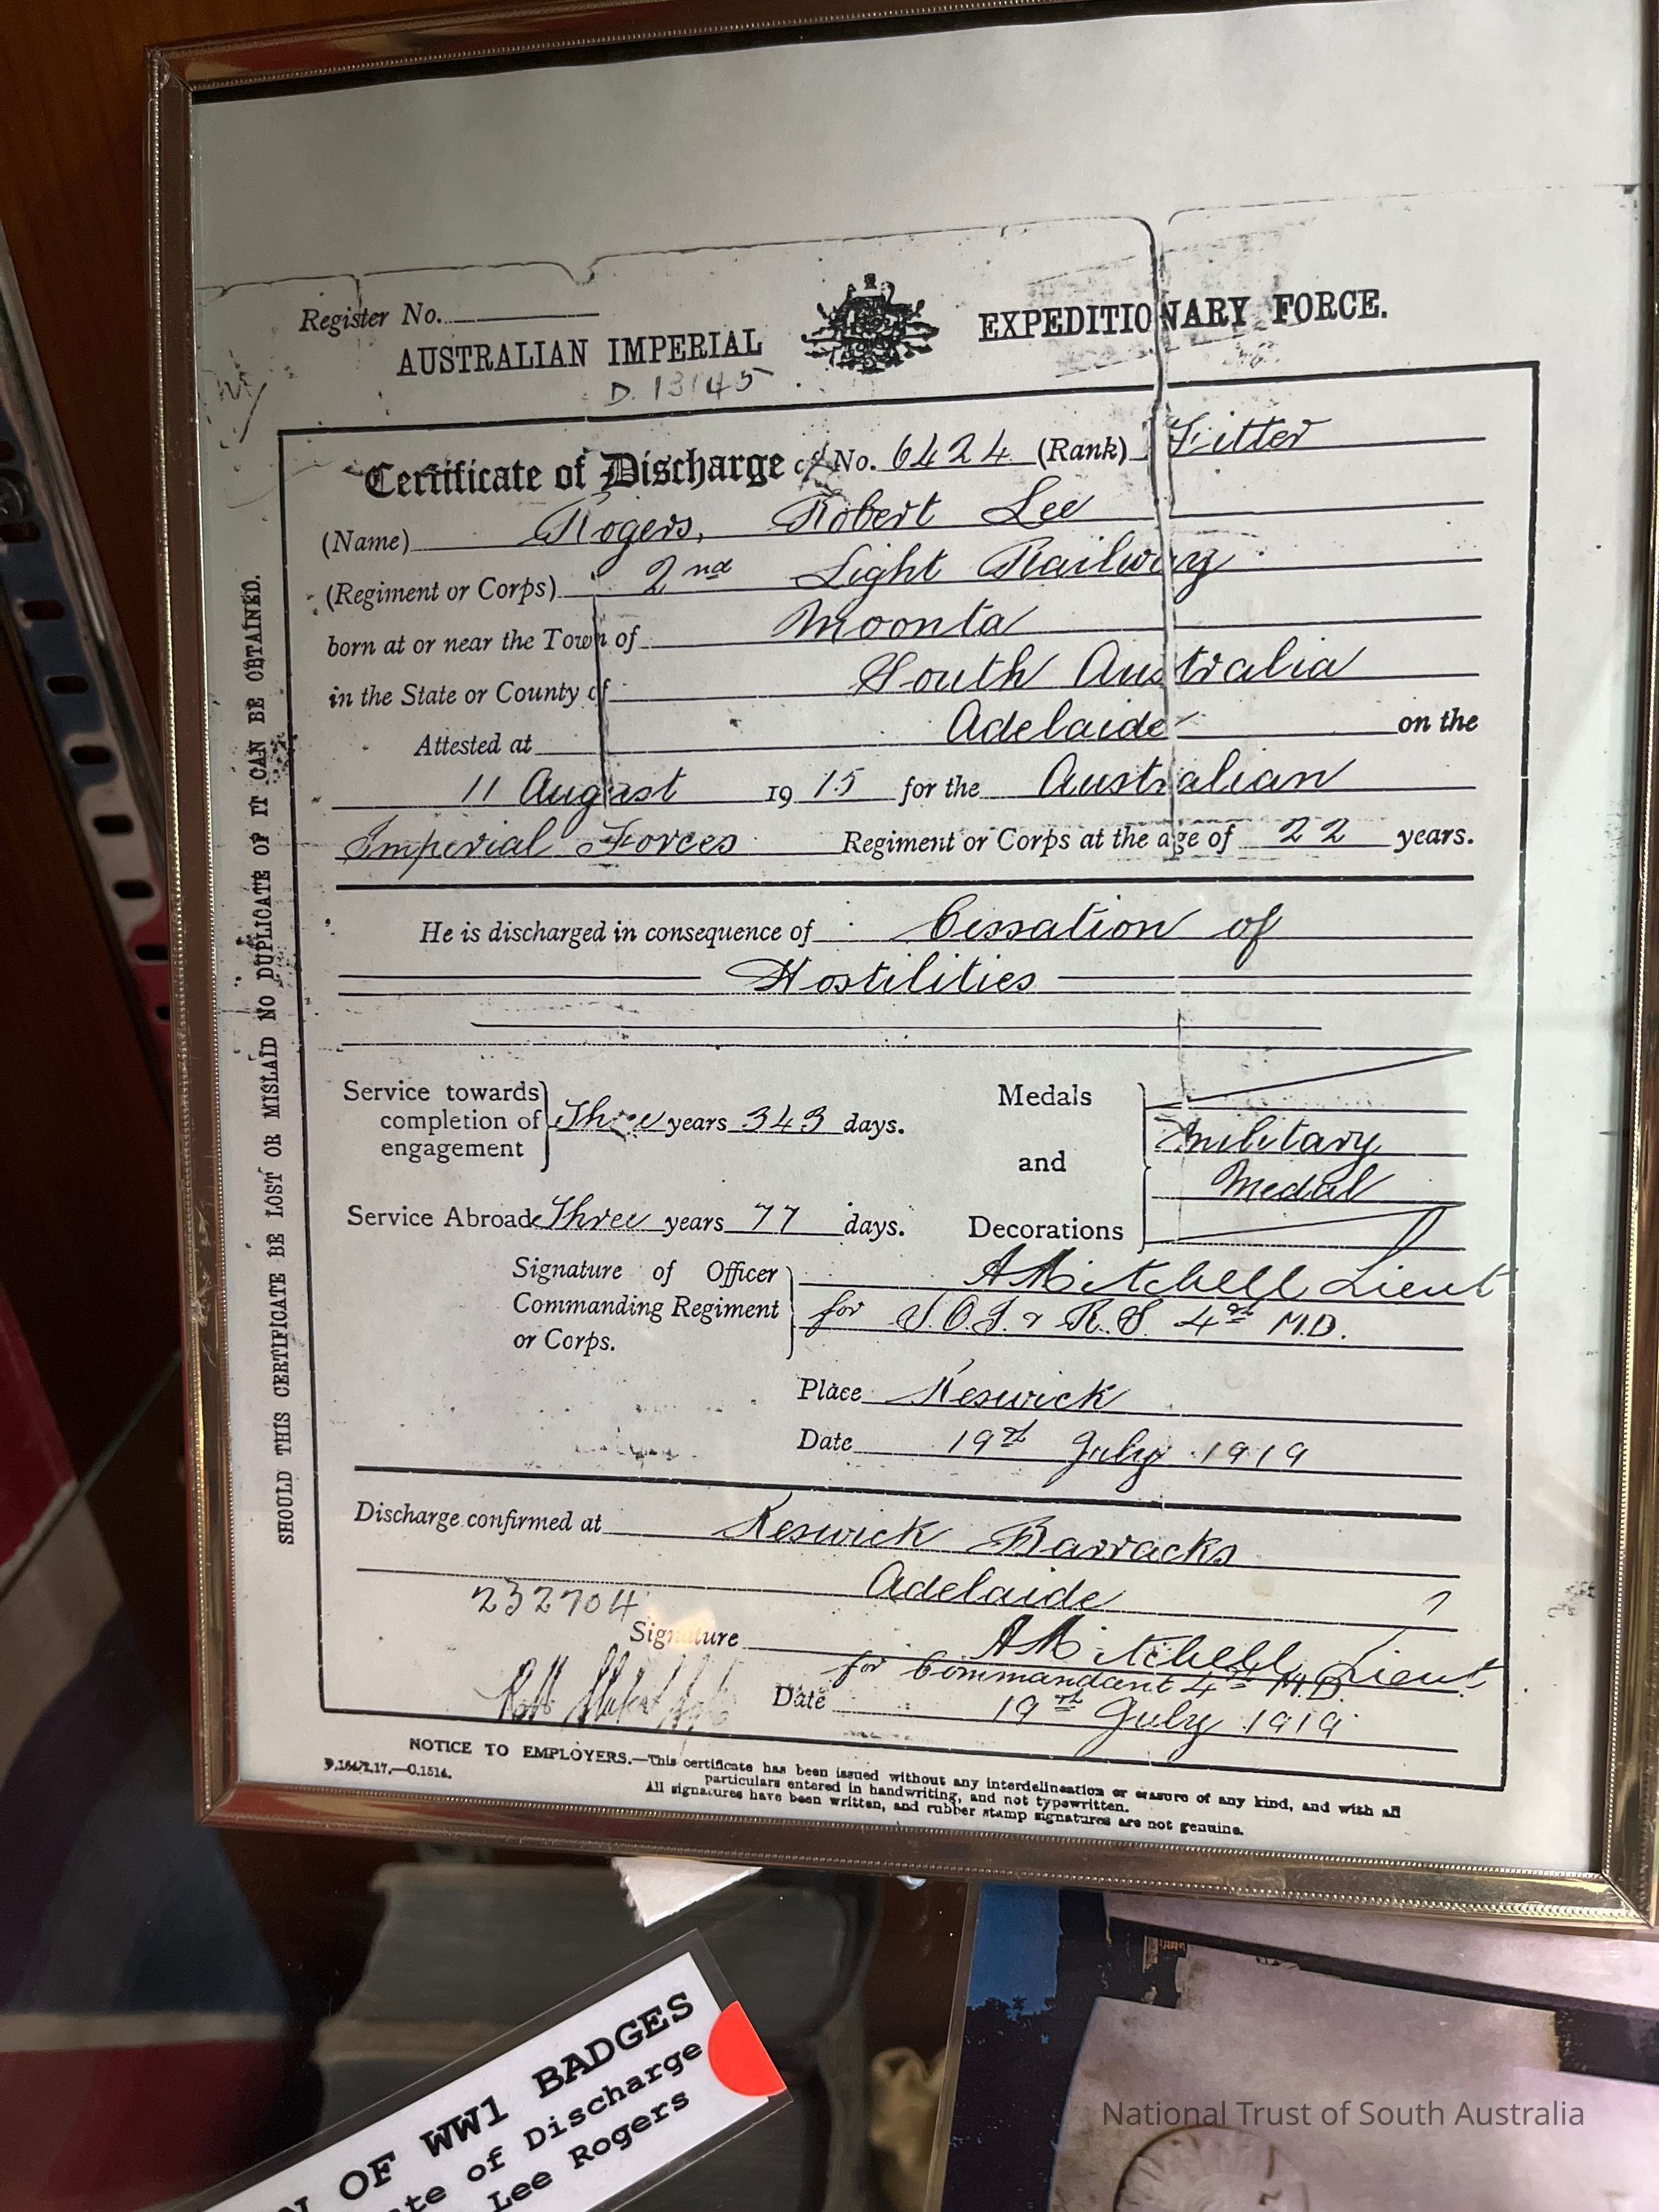 Register No.
AUSTRALIAN IMPERIAL EXPEDITIONARY FORCE.
D. 13145
Certificate of Discharge of No. 6424 (Rank) Fitter
(Name) Rogers, Robert Lee
(Regiment or Corps) 2nd Light Railway
born at or near the Town of Moonta
in the State or County of South Australia
Attested at Adelaide on the
11 August 1915 for the Australian
Imperial Forces Regiment or Corps at the age of 22 years.
He is discharged in consequence of Cessation of
Hostilities
Service towards completion of engagement Three years 343 days.
Medals and Decorations Military Medal
Service Abroad Three years 77 days.
Signature of Officer Commanding Regiment or Corps. A Mitchell Lieut
for S.O.I. & R.S. 4th M.D.
Place Keswick
Date 19th July 1919
Discharge confirmed at Keswick Barracks
Adelaide
232704
Signature A Mitchell Lieut
for Commandant 4th M.D.
Date 19th July 1919
NOTICE TO EMPLOYERS.—This certificate has been issued without any interdelineation or erasure of any kind, and with all
particulars entered in handwriting, and not typewritten.
All signatures have been written, and rubber stamp signatures are not genuine.
SHOULD THIS CERTIFICATE BE LOST OR MISLAID NO DUPLICATE OF IT CAN BE OBTAINED.
OF WW1 BADGES
of Discharge
Lee Rogers
National Trust of South Australia